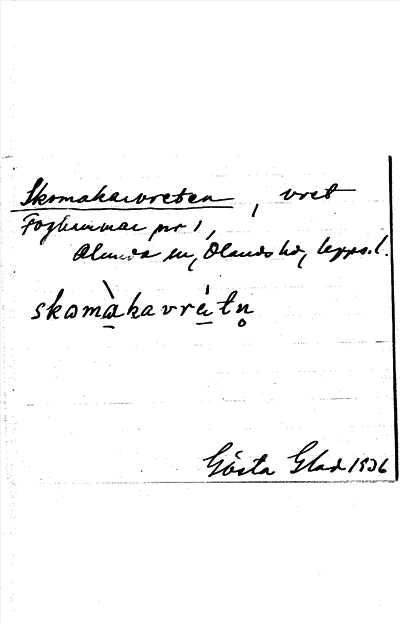 Skomakarvreten, vret
Foghammar nr 1,
Alunda sn, Olands hd, Upps. l.
skomàkavrétn̥
Gösta Glad 1936